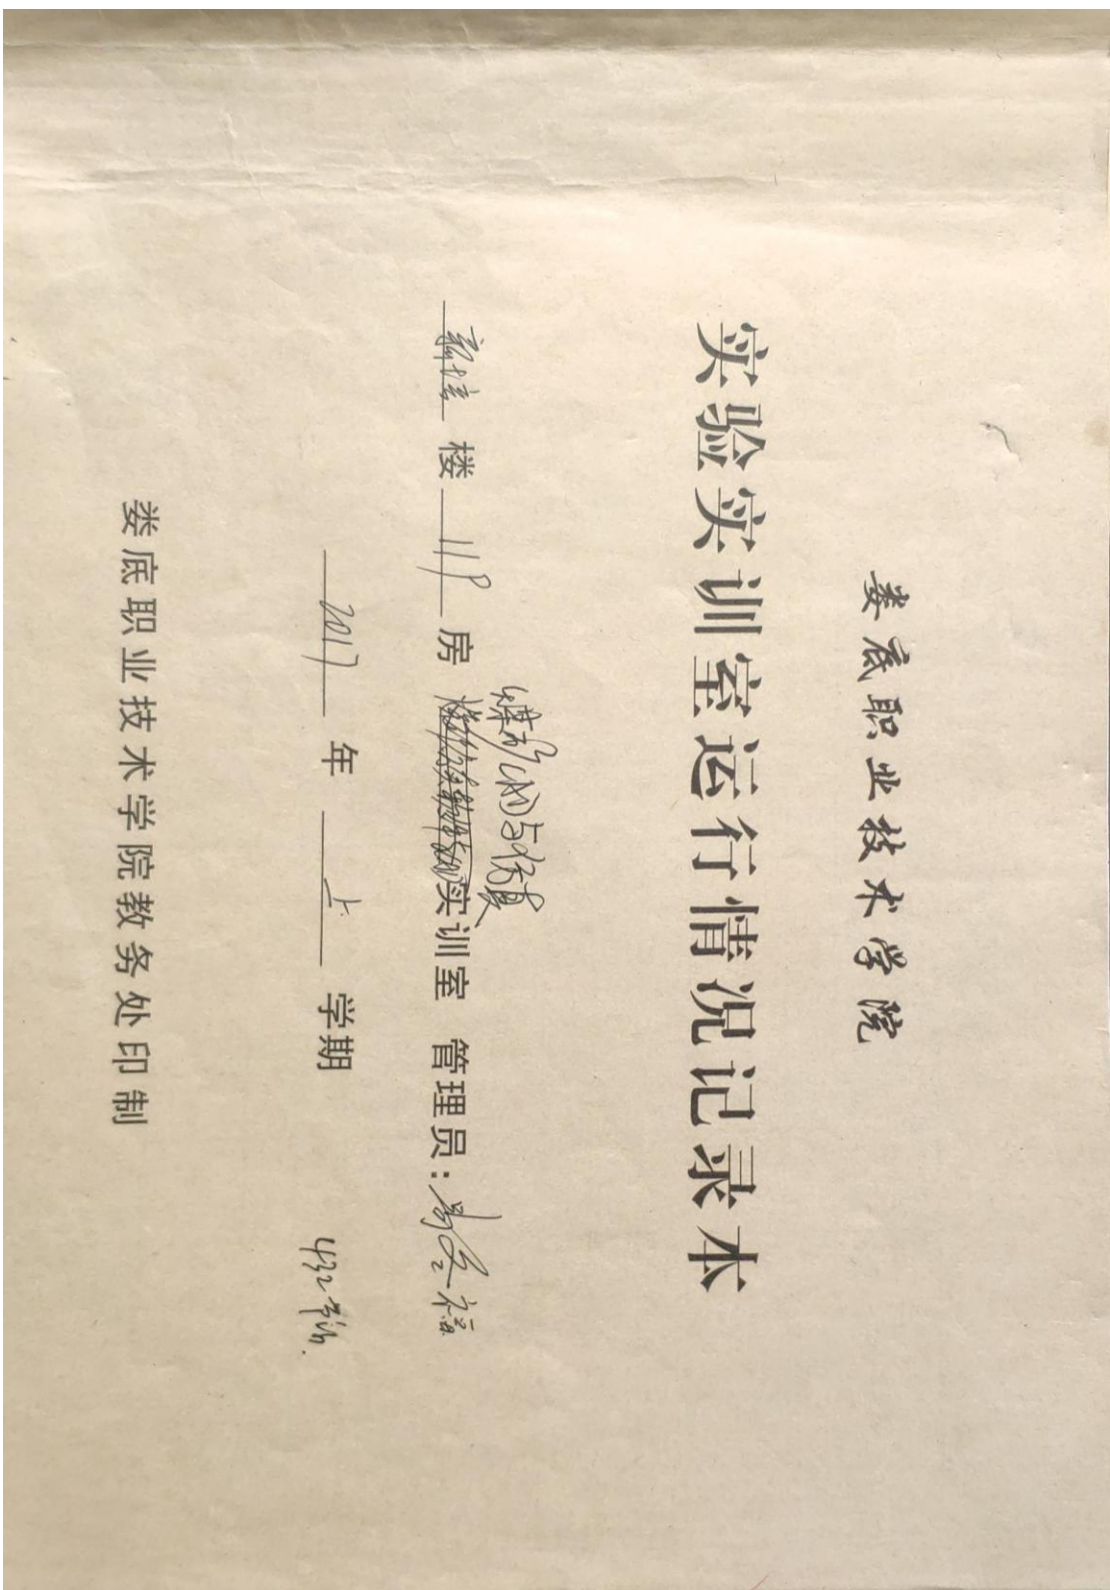 娄底职业技术学院
实验实训室运行情况记录本
煤矿CAD与仿真
楼 房 实训室 管理员:
2017 年 上 学期
娄底职业技术学院教务处印制